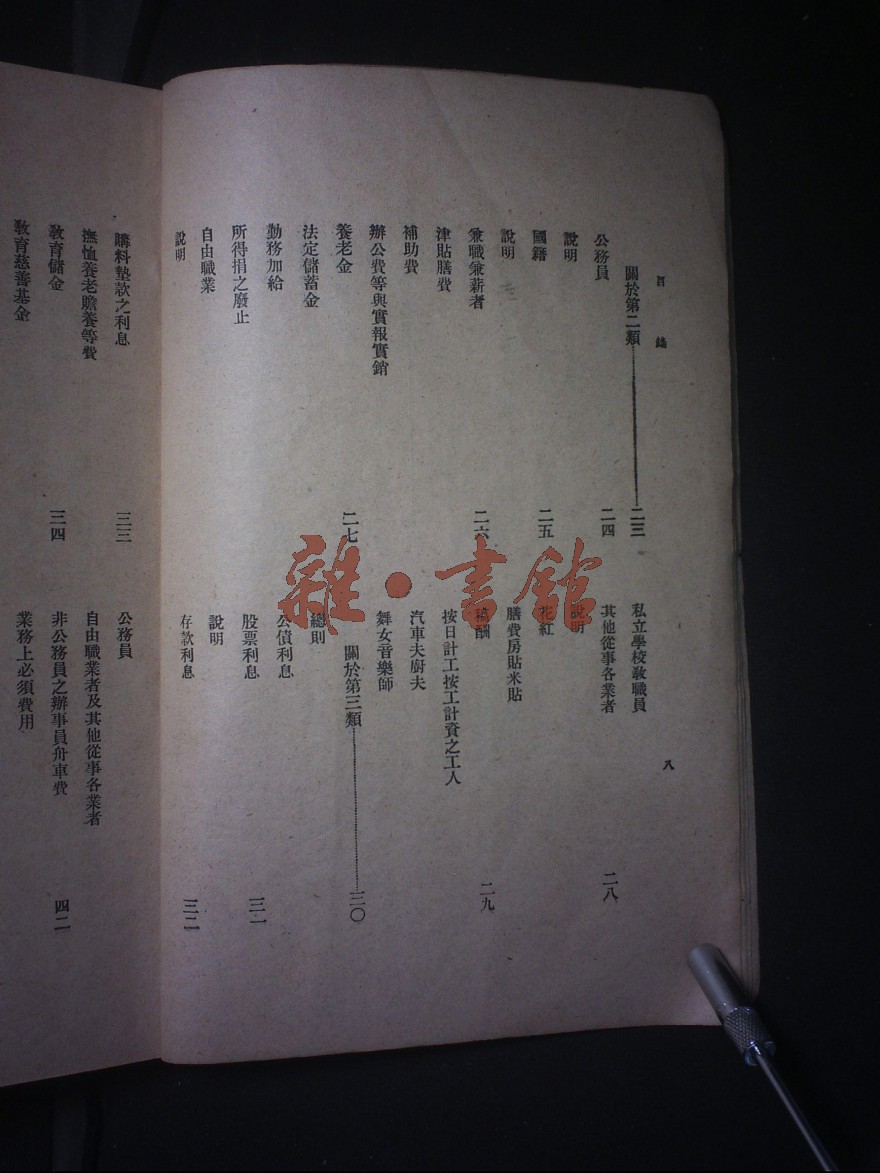 目錄
八
關於第二類……二三
公務員 二四
說明
國籍 二五
說明
兼職兼薪者 二六
津貼膳費
補助費
辦公費等與實報實銷
養老金 二七
法定儲蓄金
勤務加給
所得捐之廢止
自由職業
說明
私立學校教職員
其他從事各業者 二八
說明
花紅
膳費房貼米貼
稿酬 二九
按日計工按工計資之工人
汽車夫廚夫
舞女音樂師
關於第三類……三〇
總則
公債利息
股票利息 三一
說明
存款利息 三二
購料墊款之利息 三三
撫恤養老贍養等費
教育儲金 三四
教育慈善基金
公務員
自由職業者及其他從事各業者
非公務員之辦事員舟車費 四二
業務上必須費用
雜·書館